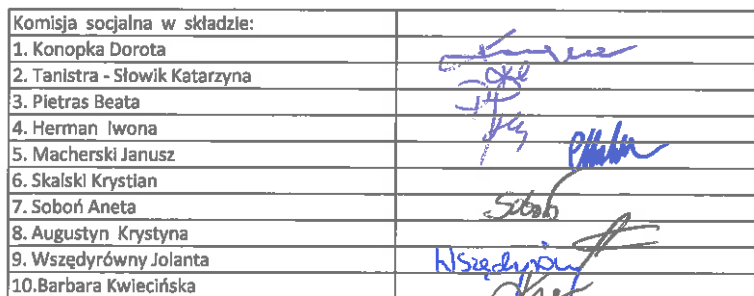 Komisja socjalna w składzie:
1. Konopka Dorota
2. Tanistra - Słowik Katarzyna
3. Pietras Beata
4. Herman Iwona
5. Macherski Janusz
6. Skalski Krystian
7. Soboń Aneta Soboń
8. Augustyn Krystyna
9. Wszędyrówny Jolanta
10.Barbara Kwiecińska